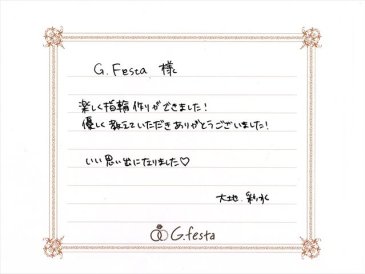 G.Festa 様
楽しく指輪作りができました!
優しく教えていただきありがとうございました!
いい思い出になりました♡
大地.
G.festa